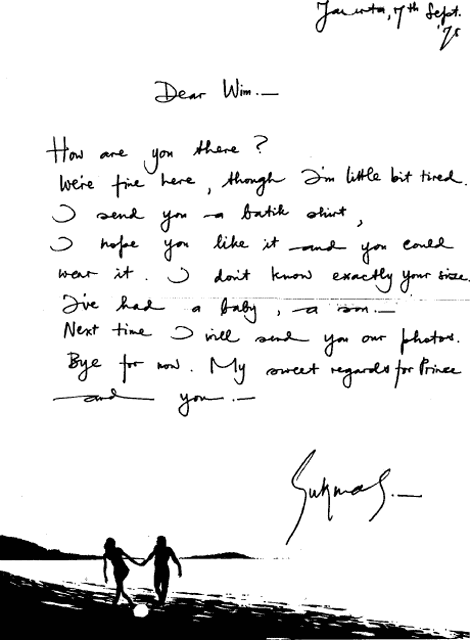 Jakarta, 7th Sept.
'78
Dear Wim.—
How are you there?
We're fine here, though I'm little bit tired.
I send you a batik shirt,
I hope you like it and you could
wear it. I don't know exactly your size.
I've had a baby, a son.—
Next time I will send you our photos.
Bye for now. My sweet regards for Prince
and you.—